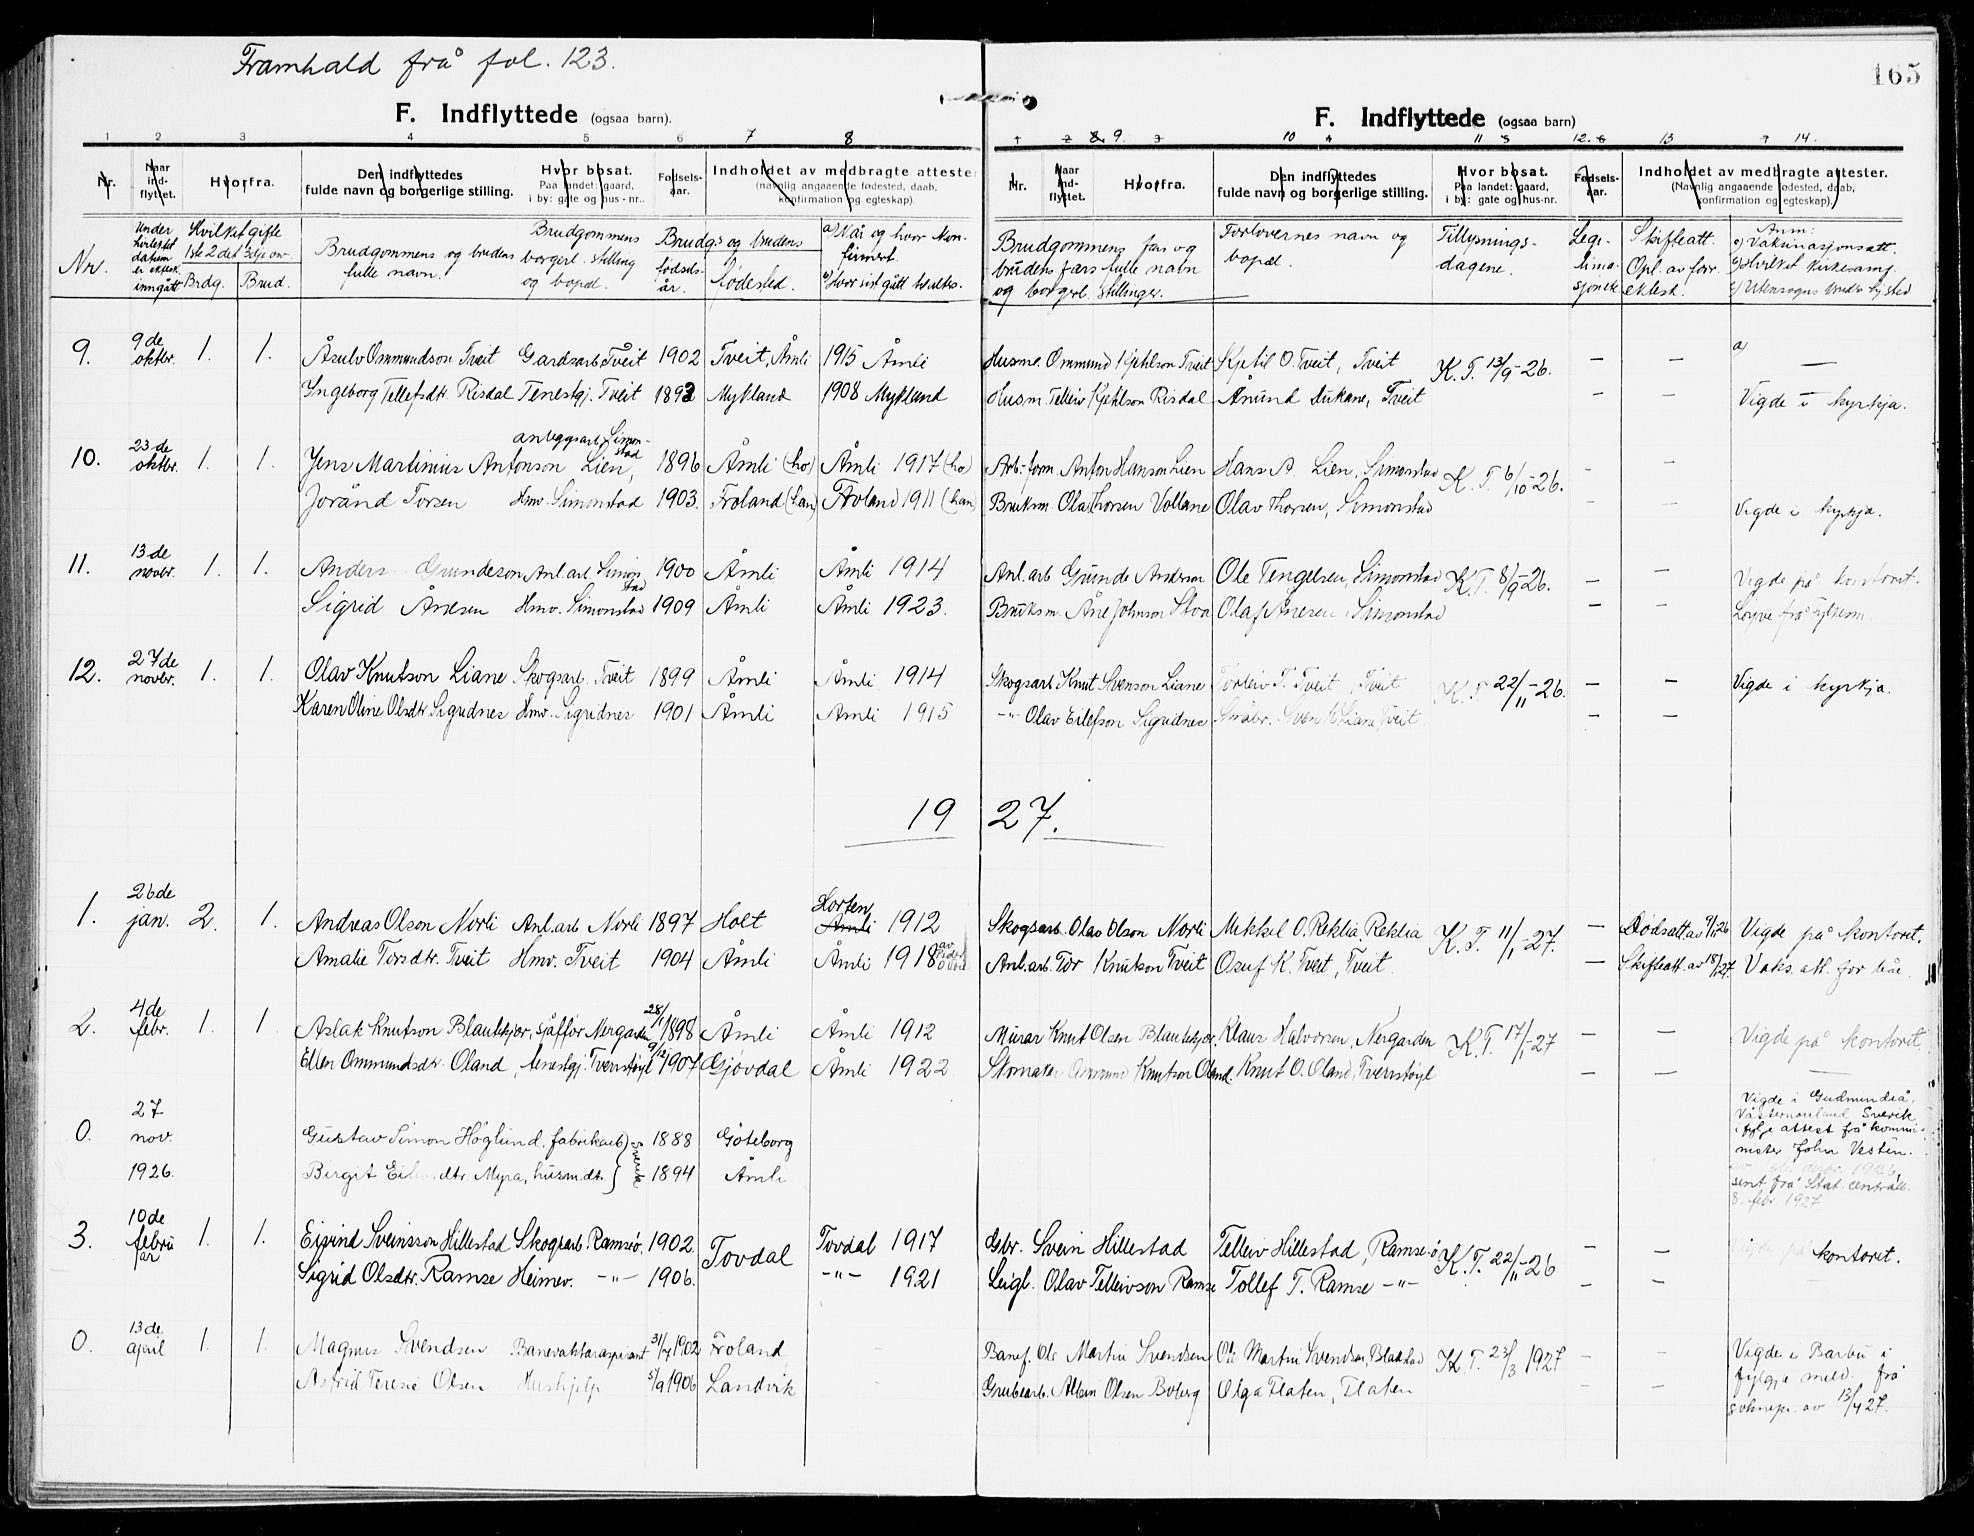 Framhald frå fol. 123.
165
F. Indflyttede (ogsaa barn).
F. Indflyttede (ogsaa barn)
1 2 3 4 5 6 7 8
1 2 8 9. 3 10 4 11 5 12. 6 13 7 14.
Nr. Naar ind-flyttet. Hvorfra. Den indflyttedes fulde navn og borgerlige stilling. Hvor bosat. Paa landet: gaard, i by: gate og hus-nr.. Fødsels-aar. Indholdet av medbragte attester (navnlig angaaende fødested, daab, konfirmation og egteskap).
Nr. Naar ind-flyttet. Hvorfra. Den indflyttedes fulde navn og borgerlige stilling. Hvor bosat. Paa landet: gaard, i by: gate og hus-nr. Fødsels-aar. Indholdet av medbragte attester. (Navnlig angaaende fødested, daab, konfirmation og egteskap).
Nr. Under hvilket datum er ektesk. inngått Hvilket gifte 1ste 2det 3dje Brdg. Brud. Brudgommens og brudens fulle navn. Brudgommens borgerl. stilling og bopæl. Brudg.s og brudens fødsels-år. fødested. a) Når og hvor konfirmert.
Brudgommens far og brudens fars fulle navn og borgerl. stillinger. Forlovernes navn og bopæl. Tillysnings-dagene. Legi-tima-sjoner. Skifteatt. Opl. av forr. ektesk. Anm: a) Vaksinasjonsatt. b) Hvilket kirkesamf. c) Utensogns bruder
9. 9de oktbr. 1. 1. Åsulv Ommundson Tveit Gardsarb. Tveit 1902 Tveit, Åmli 1915 Åmli Husm. Ommund Kjetilson Tveit Kjetil O. Tveit, Tveit K. T. 13/9-26. – – a) –
Ingeborg Tellefsdtr. Risdal Tenestgj. Tveit 1893 Mykland 1908 Mykland Husm. Telleiv Kjetilson Risdal Ånund Dukane, Tveit – – Vigde i kyrkja.
10. 23de oktbr. 1. 1. Jens Martinius Antonson Lien, anleggsarb. Simonstad 1896 Åmli (ho) Åmli 1917 (ho) Arb.-form. Anton Hanson Lien Hans A Lien, Simonstad K. T. 6/10-26. – –
Jorånd Torsen Hmv. Simonstad 1903. Froland (han) Froland 1911 (han) Bruksm. Olav Thorsen Vollane Olav Thorsen, Simonstad – – Vigde i kyrkja.
11. 13de novbr. 1. 1. Anders Gundeson Anl.arb. Simonstad 1900 Åmli Åmli 1914 Anl.arb Gunde Anderson Ole Tengelsen, Simonstad K. T. 8/9-26. – – Vigde på kontoret.
Sigrid Ånesen Hmv. Simonstad 1909 Åmli Åmli 1923. Bruksm. Åne Johnson Stoa Olaf Ånesen, Simonstad – – Løyve frå fylkesm.
12. 27de novbr. 1. 1. Olav Knutson Liane Skogsarb. Tveit 1899 Åmli Åmli 1914 Skogsarb Knut Svenson Liane Torleiv T. Tveit, Tveit K. T 22/11-26. – – Vigde i kyrkja.
Karen Oline Olsdtr Sigridnes Hmv. Sigridnes 1901 Åmli Åmli 1915 –"– Olav Eilefson Sigridnes Småbr. Sven K. Liane, Tveit – –
1927.
1. 26de jan. 2. 1. Andreas Olson Norli Anl.arb Norli 1897 Holt Horten Åmli 1912 Skogsarb. Olav Olson Norli Mikkel O. Reklia, Reklia K. T. 11/1-27. – Dødsatt. av 9/1 26 Vigde på kontoret.
Amalie Torsdtr. Tveit Hmv. Tveit 1904 Åmli Åmli 1918 av Anl.arb. Tor Knutson Tveit Osuf K. Tveit, Tveit. – Skifteatt. av 18/1 27. Vaks.att. for båe.
2. 4de febr. 1. 1. Aslak Knutson Blautekjær, sjåffør Nergarden 28/1 1898 Åmli Åmli 1912 Murar Knut Olsen Blautekjær. Klaus Halvorsen, Nergarden K. T. 17/1-27 – – Vigde på kontoret.
Ellen Ommundsdtr. Oland, tenestgj. Tverrstøyl 9/12 1907 Gjøvdal Åmli 1922 Skomaker Ommund Knutson Oland. Knut O. Oland, Tverrstøyl – –
0. 27 nov. 1926. Gustav Simon Höglund, fabrikarb } Sverik 1888 Göteborg Vigde i Gudmundrå, Västernorrland, Sverik
Birgit dtr. Myra, husm.dt. 1894 Åmli i fylje attest frå komminister John Vestin.
novbr. 1926, sent frå Stat. centralb. 8. febr 1927.
3. 10de februar 1. 1. Eivind Sveinsson Hillestad Skogsarb. Ramsø. 1902. Tovdal Tovdal 1917 Gbr. Svein Hillestad Telleiv Hillestad, Ramse K. T. 22/11-26 – – Vigde på kontoret.
Sigrid Olsdtr. Ramse Heimev. –"– 1906. –"– 1921 Leigl. Olav Telleivson Ramse Tollef T. Ramse –"– – –
0. 13de april 1. 1. Magnus Svendsen Banevaktaraspirant 31/7 1902 Froland Banef. Ole Martin Svendsen Ole Martin Svendsen, Blakstad K. T. 23/3 1927 – – Vigde i Barbu i
Astrid Terese Olsen Hushjelp 5/9 1906 Landvik Grubearb. Albin Olsen Boberg Olga Flaten, Flaten – – fylgje meld. frå soknepr. av 13/4 27.